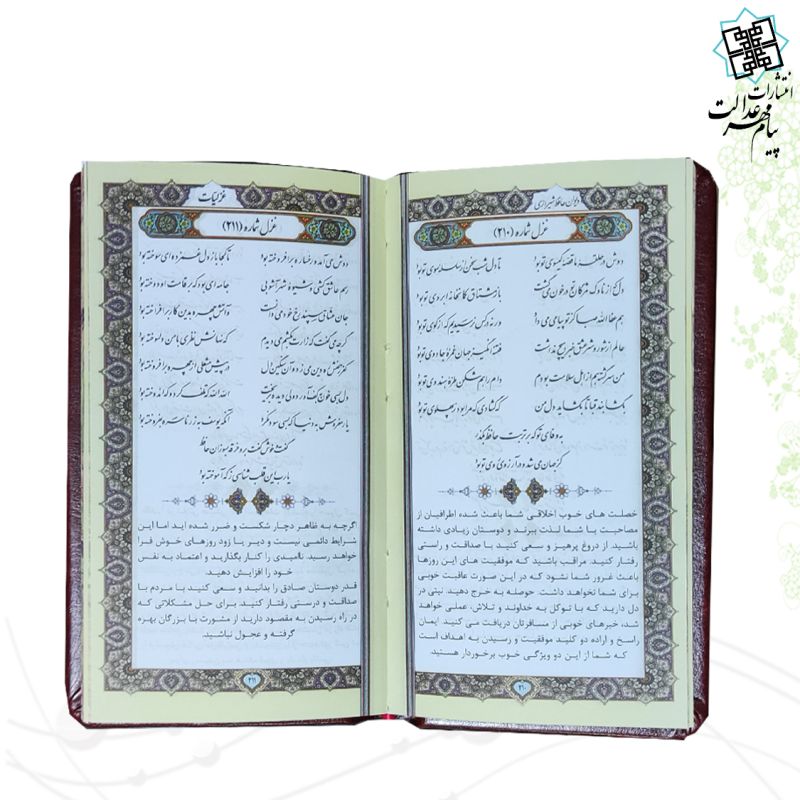 انتشارات
پیام مهر عدالت
دیوان حافظ شیرازی
غزل شماره (۲۱۰)
دوش در حلقه ما قصه گیسوی تو بود تا دل شب سخن از سلسله موی تو بود
دل که از ناوک مژگان تو در خون می‌گشت باز مشتاق کمانخانه ابروی تو بود
هم عفا الله صبا کز تو پیامی می‌داد ورنه در کس نرسیدیم که از کوی تو بود
عالم از شور و شر عشق خبر هیچ نداشت فتنه انگیز جهان غمزه جادوی تو بود
من سرگشته هم از اهل سلامت بودم دام راهم شکن طره هندوی تو بود
بگشا بند قبا تا بگشاید دل من که گشادی که مرا بود ز پهلوی تو بود
به وفای تو که بر تربت حافظ بگذر
کز جهان می‌شد و در آرزوی روی تو بود
خصلت های خوب اخلاقی شما باعث شده اطرافیان از
مصاحبت با شما لذت ببرند و دوستان زیادی داشته
باشید. از دروغ پرهیز و سعی کنید با صداقت و راستی
رفتار کنید. مراقب باشید که موفقیت های این روزها
باعث غرور شما نشود که در این صورت عاقبت خوبی
برای شما نخواهد داشت. حوصله به خرج دهید. نیتی در
دل دارید که با توکل به خداوند و تلاش، عملی خواهد
شد، خبرهای خوبی از مسافرتان دریافت می کنید. ایمان
راسخ و اراده دو کلید موفقیت و رسیدن به اهداف است
که شما از این دو ویژگی خوب برخوردار هستید.
۲۱۰
غزلیات
غزل شماره (۲۱۱)
دوش می آمد و رخساره برافروخته بود تا کجا باز دل غمزده ای سوخته بود
رسم عاشق کشی و شیوه شهرآشوبی جامه ای بود که بر قامت او دوخته بود
جان عشاق سپند رخ خود می دانست و آتش چهره بدین کار برافروخته بود
گرچه می گفت که زارت بکشم می دیدم که نهانش نظری با من دلسوخته بود
کفر زلفش ره دین می زد و آن سنگین دل در پیش مشعلی از چهره برافروخته بود
دل بسی خون به کف آورد ولی دیده بریخت الله الله که تلف کرد و که اندوخته بود
یار مفروش به دنیا که بسی سود نکرد آنکه یوسف به زر ناسره بفروخته بود
گفت و خوش گفت برو خرقه بسوزان حافظ
یا رب این قلب شناسی ز که آموخته بود
اگرچه به ظاهر دچار شکست و ضرر شده اید اما این
شرایط دائمی نیست و دیر یا زود روزهای خوش فرا
خواهد رسید. ناامیدی را کنار بگذارید و اعتماد به نفس
خود را افزایش دهید.
قدر دوستان صادق را بدانید و سعی کنید با مردم با
صداقت و درستی رفتار کنید. برای حل مشکلاتی که
در راه رسیدن به مقصود دارید از مشورت با بزرگان بهره
گرفته و عجول نباشید.
۲۱۱